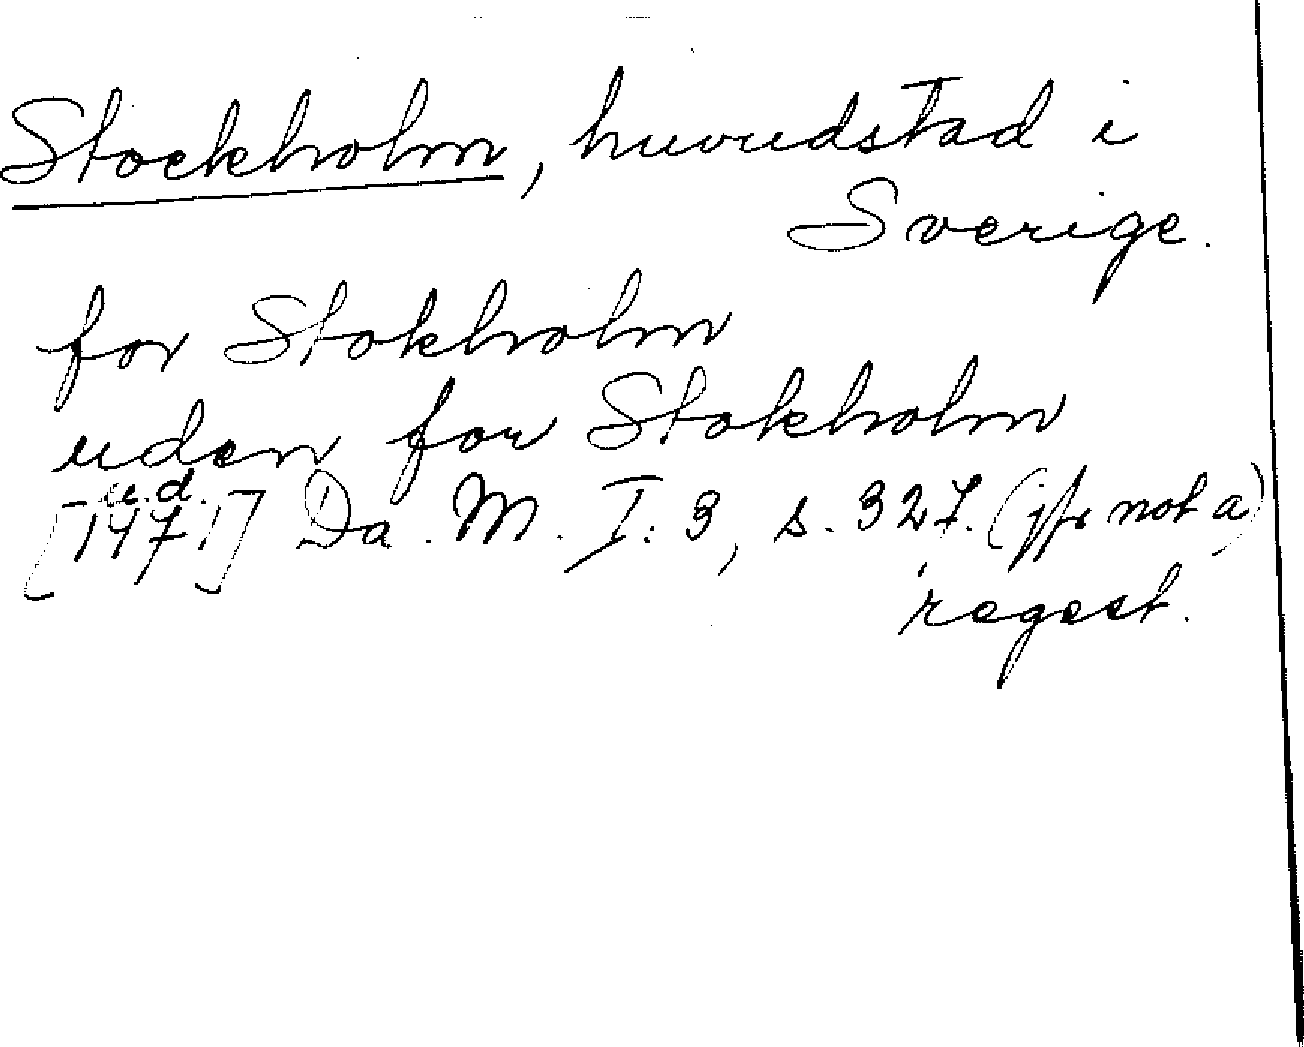 Stockholm, huvudstad i
Sverige.
for Stokholm
uden for Stokholm
u.d.
[1471] Da. M. I: 3, s. 327. (jfr not a)
regest.